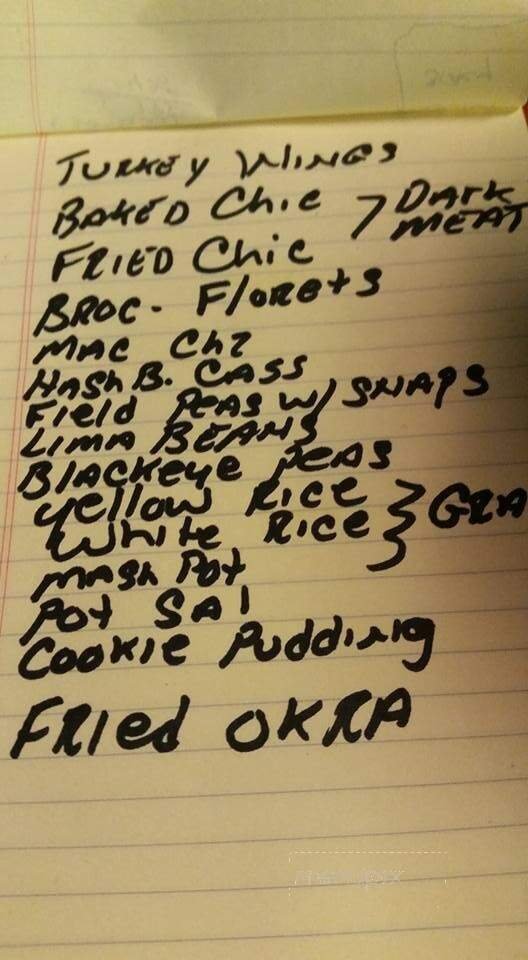 TURKEY WINGS
BAKED Chic > DARK
MEAT
FRIED Chic
BROC. FlOREtS
MAC ChZ
HASh B. CASS
Field PEAS W/ SNAPS
LIMA BEANS
BlACKEYE PEAS
Yellow RICE } GRA
White RICE
MASh Pot
Pot SAl
COOKIE Pudding
FRIed OKRA